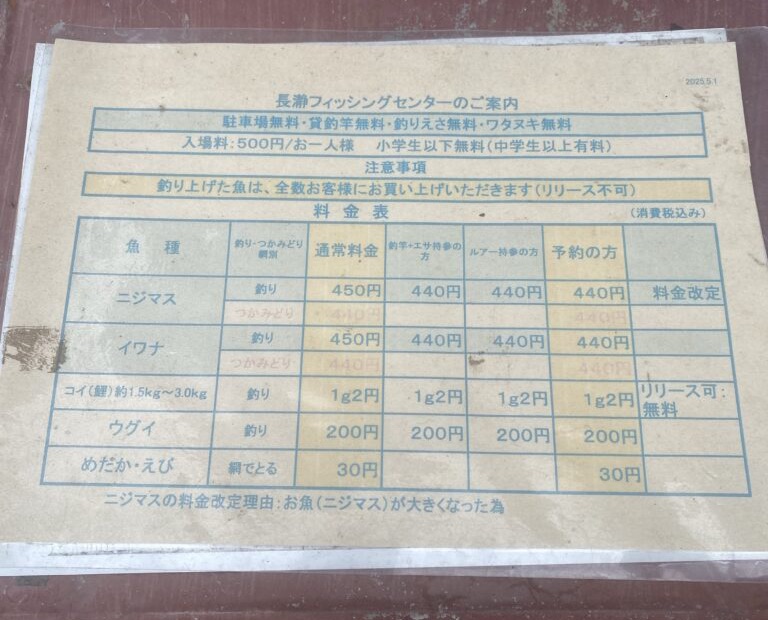 2025.5.1
長瀞フィッシングセンターのご案内
駐車場無料・貸釣竿無料・釣りえさ無料・ワタヌキ無料
入場料:500円/お一人様 小学生以下無料(中学生以上有料)
注意事項
釣り上げた魚は、全数お客様にお買い上げいただきます(リリース不可)
料金表 (消費税込み)
魚種 釣り・つかみどり網別 通常料金 釣竿+エサ持参の方 ルアー持参の方 予約の方
ニジマス 釣り 450円 440円 440円 440円 料金改定
つかみどり 440円 440円
イワナ 釣り 450円 440円 440円 440円
つかみどり 440円 440円
コイ(鯉)約1.5kg〜3.0kg 釣り 1g2円 1g2円 1g2円 1g2円 リリース可:無料
ウグイ 釣り 200円 200円 200円 200円
めだか・えび 網でとる 30円 30円
ニジマスの料金改定理由:お魚(ニジマス)が大きくなった為